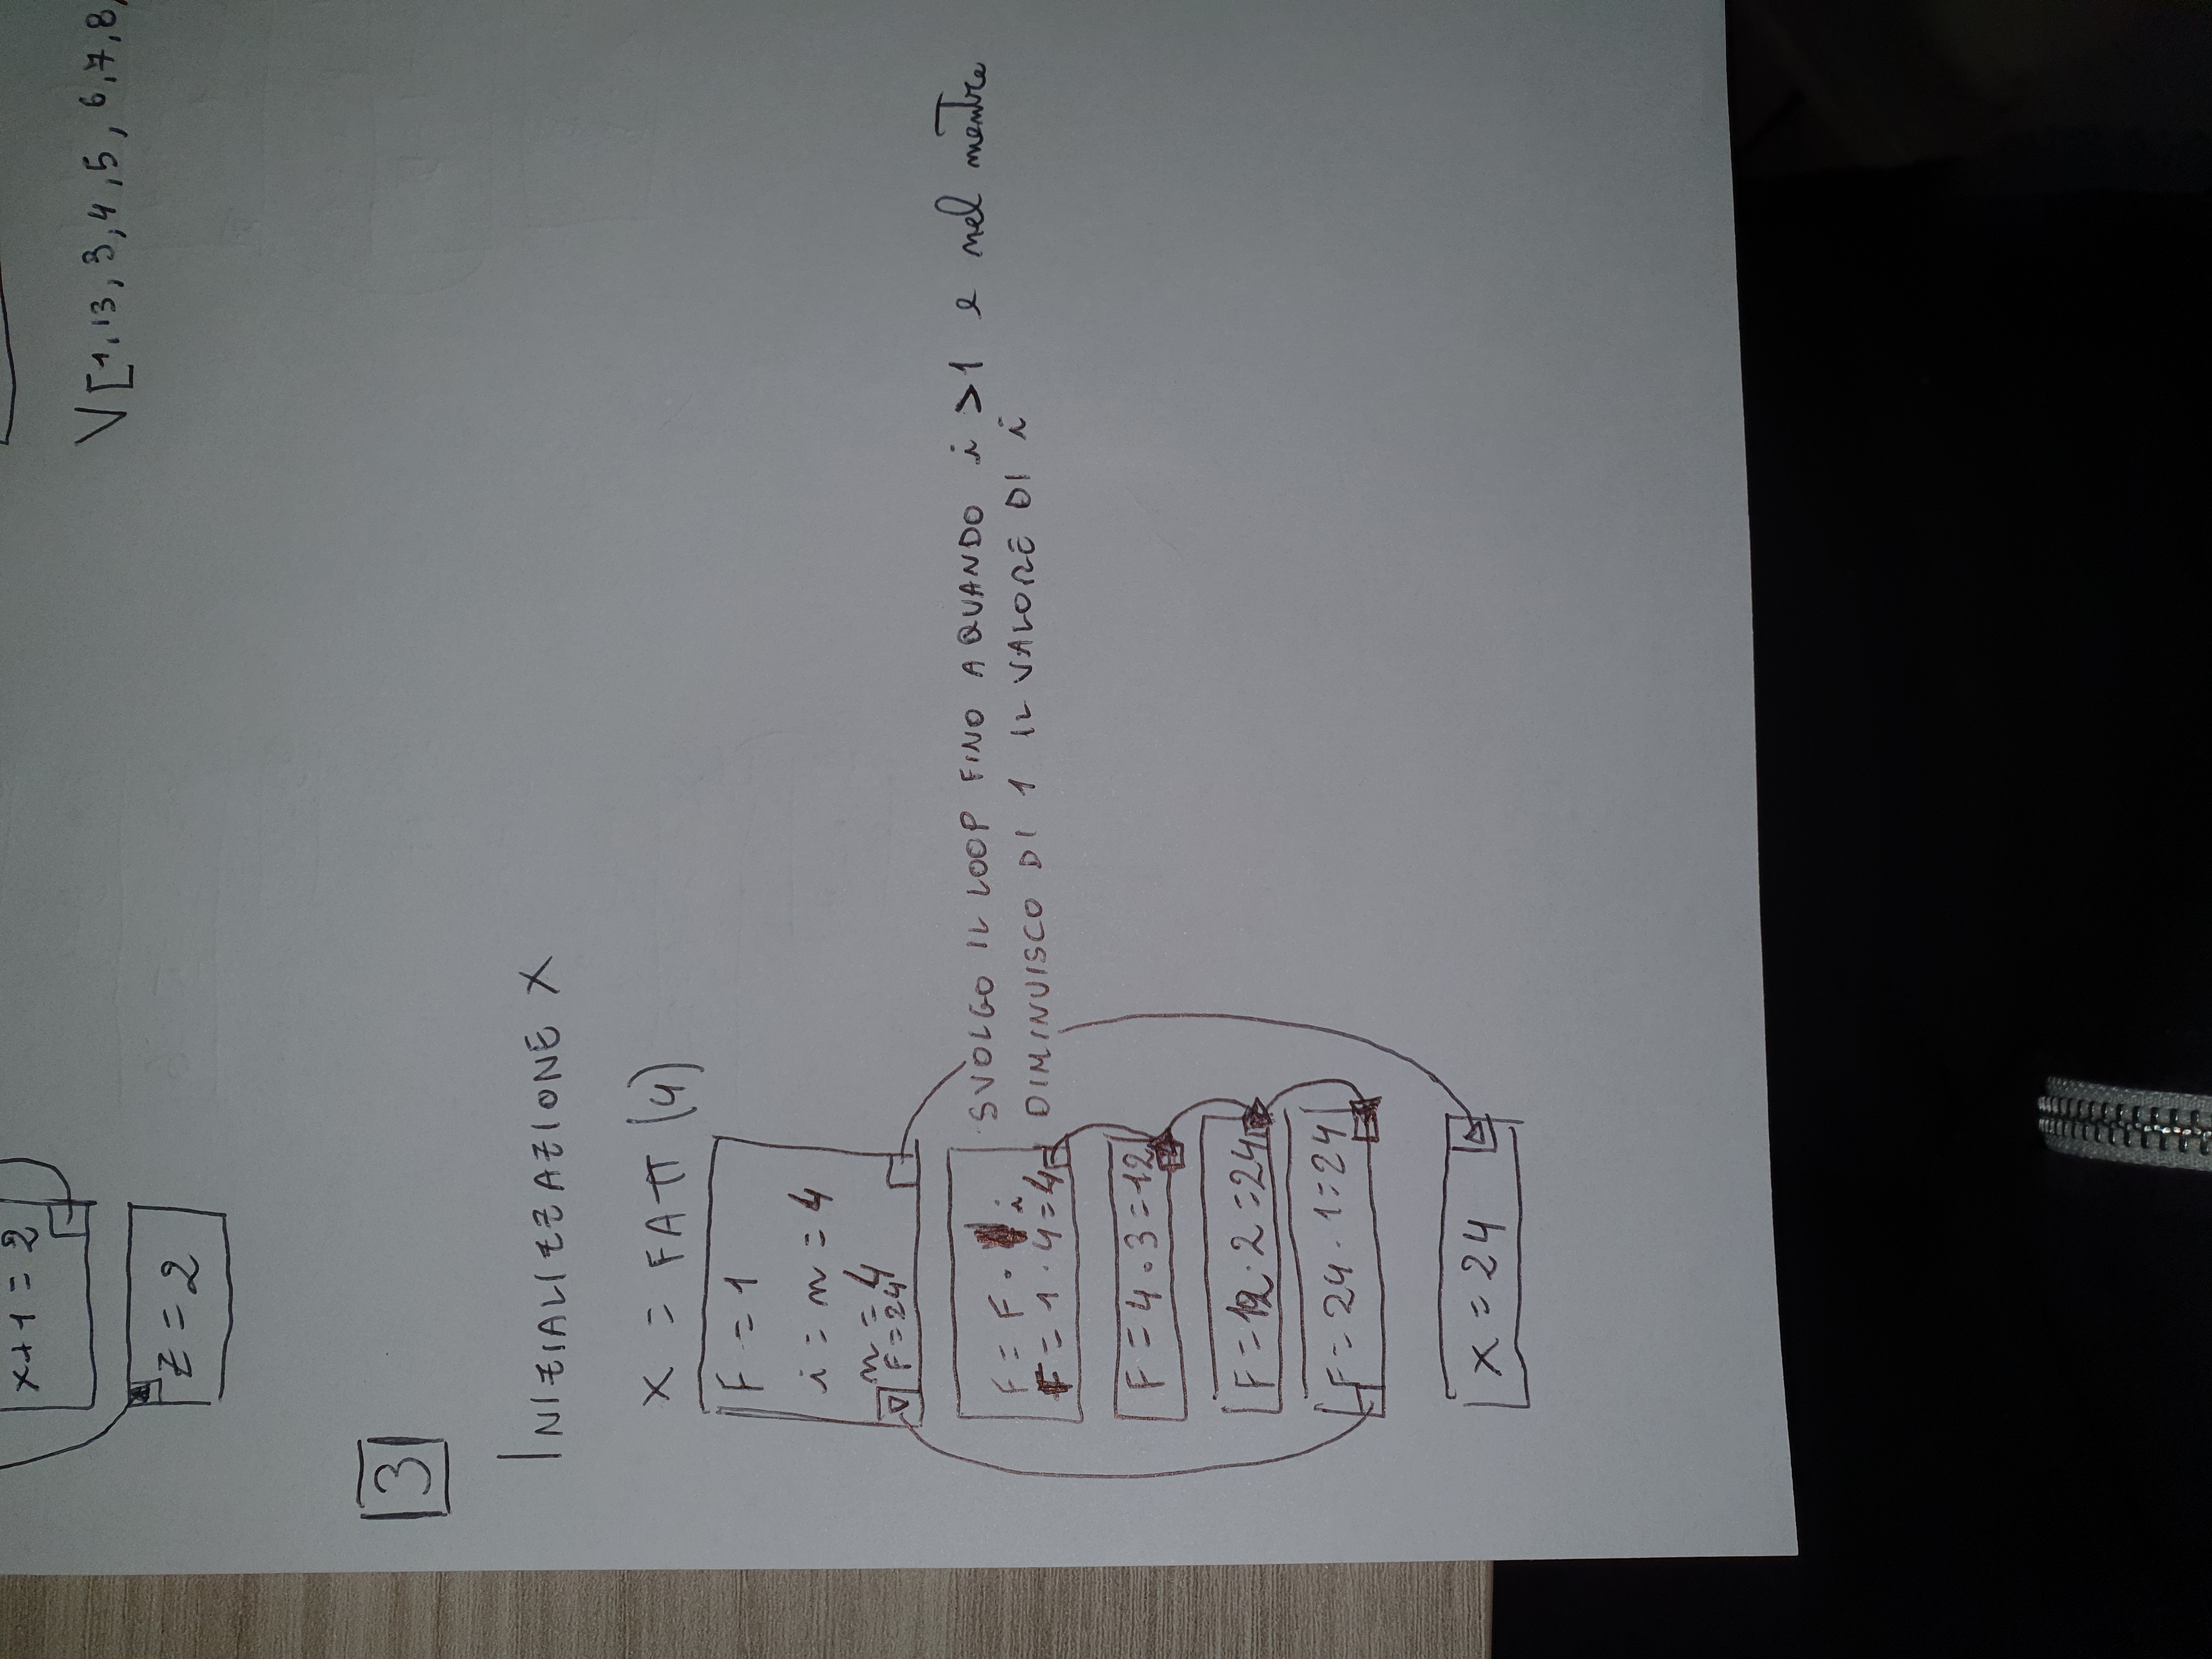 x+1=2
V[1,13,3,4,5,6,7,8,
z=2
3
INIZIALIZZAZIONE X
X = FATT (4)
F = 1
i = n = 4
n = 4
F=24
F = F · i
F = 1 · 4 = 4
SVOLGO IL LOOP FINO A QUANDO i >1 e nel mentre
DIMINUISCO DI 1 IL VALORE DI i
F = 4 · 3 = 12
F = 12 · 2 = 24
F = 24 · 1 = 24
x = 24